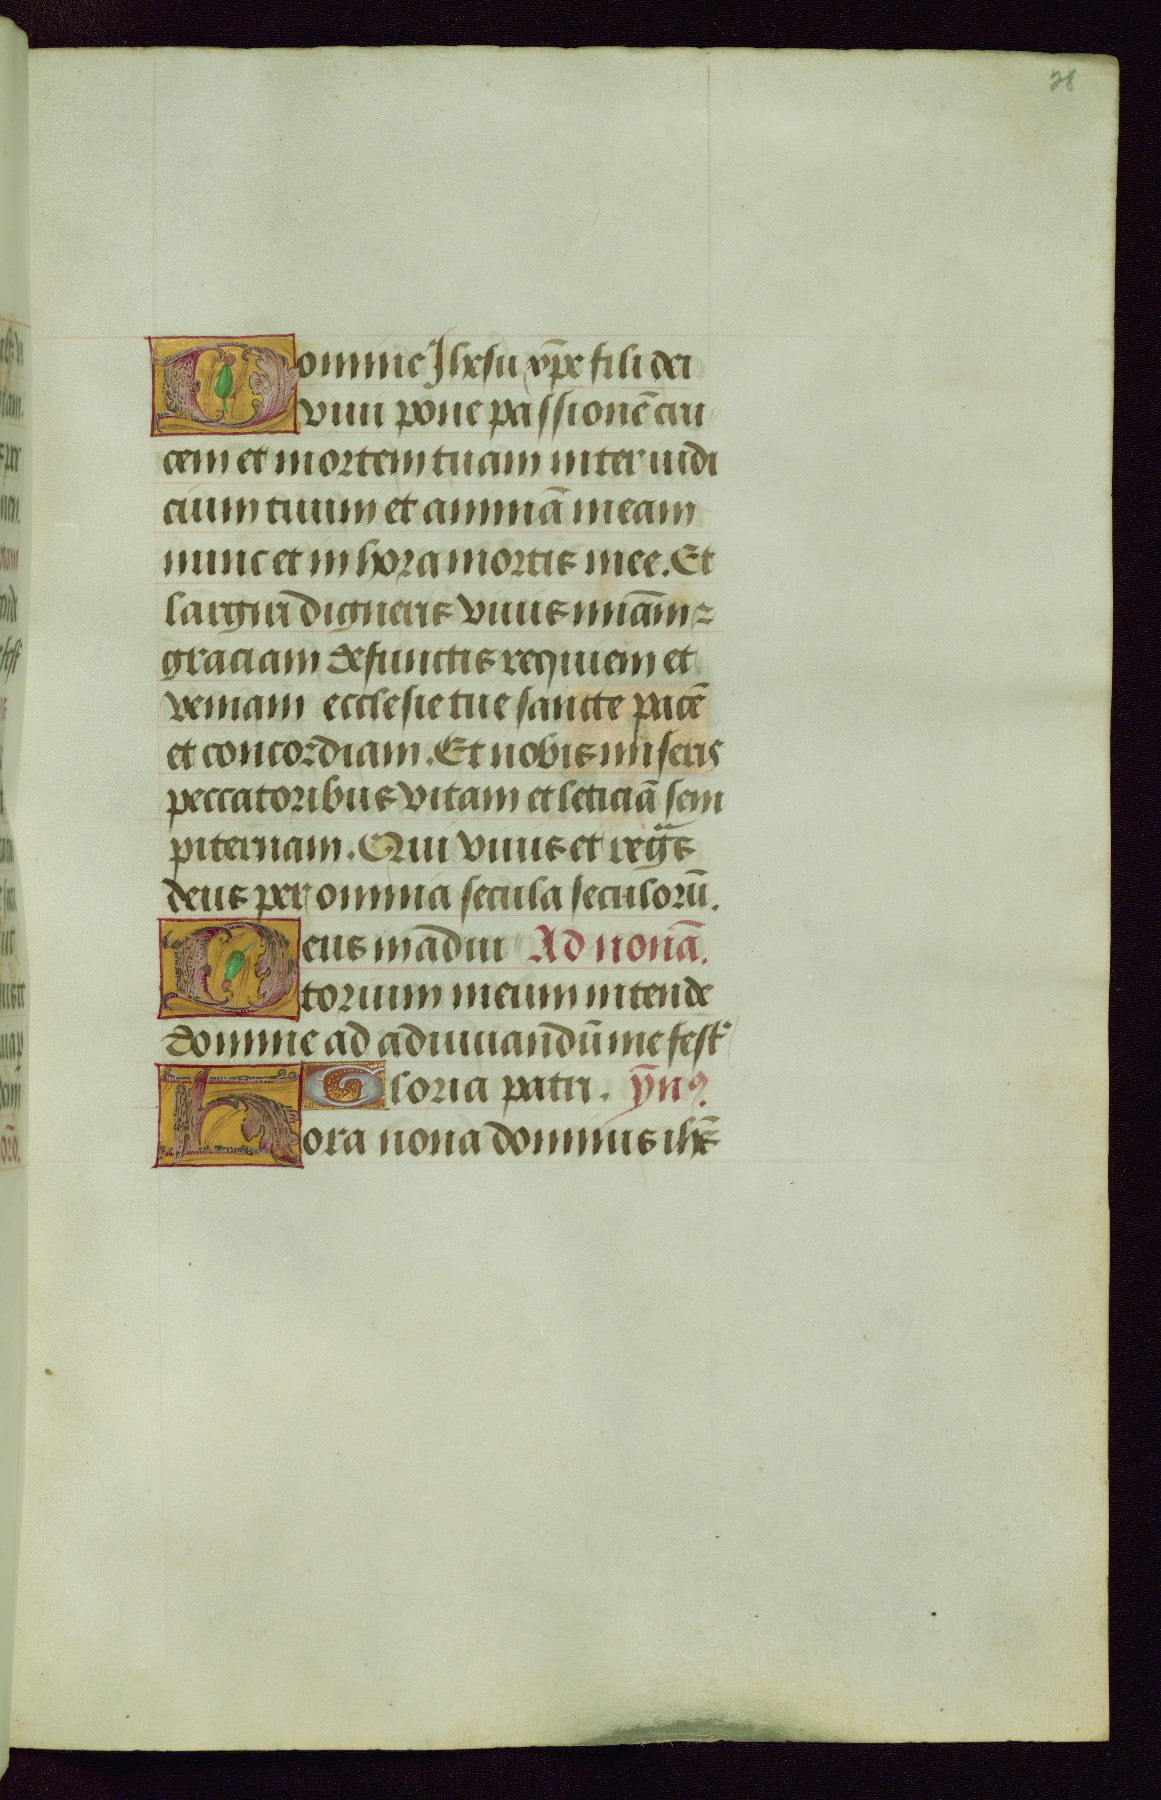 28
Domine Jhesu xp̄e fili dei
viui pone passionē cru
cem et mortem tuam inter iudi
cium tuum et animā meam
nunc et in hora mortis mee. Et
largiri digneris viuis miāmꝛ
graciam defunctis requiem et
veniam ecclesie tue sancte pacē
et concordiam. Et nobis miseris
peccatoribus vitam et leticiā sem
piternam. Qui viuis et regͣs
deus per omnia secula seculorū.
Deus in adiu Ad nonā.
torium meum intende
domine ad adiuuandū me fest
Gloria patri. ym̄
Hora nona dominus ihs̄